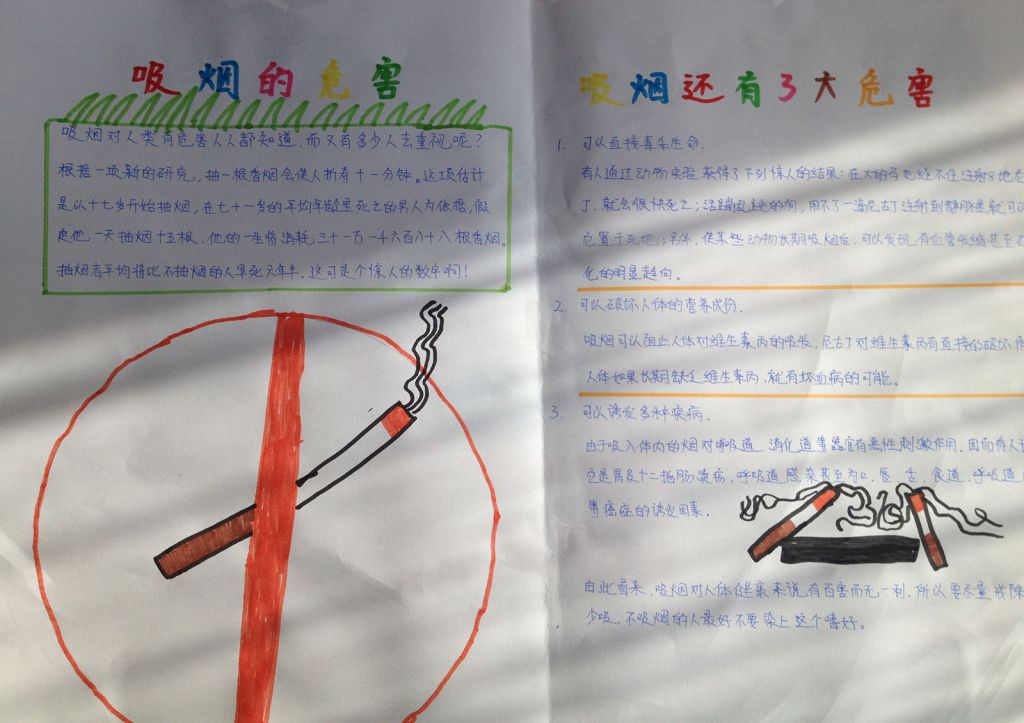 吸烟的危害
吸烟对人类有危害人人都知道,而又有多少人去重视呢?
根据一项新的研究,抽一根香烟会使人折寿十一分钟。这项估计
是以十七岁开始抽烟,在七十一岁的平均年龄里死亡的男人为依据,假
定他一天抽烟十五根,他的一生将消耗三十一万一千六百八十八根香烟。
抽烟者平均将比不抽烟的人早死六年半,这可是个惊人的数字啊!
吸烟还有3大危害
1. 可以直接毒杀生命.
有人通过动物实验获得了下列惊人的结果:在大的
丁,就会很快死亡;活蹦乱跳的狗,用不了一滴尼古丁注射到静脉里就可
危置于死地;另外,使某些动物长期吸烟后,可以发现有血管收缩甚至
化的明显趋向。
2. 可以破坏人体的营养成份.
吸烟可以阻止人体对维生素丙的吸收,尼古丁对维生素丙有直接的破坏作
人体如果长期缺乏维生素丙,就有坏血病的可能。
3. 可以诱发多种疾病.
由于吸入体内的烟对呼吸道、消化道等器官有恶性刺激作用,因而有人
它是胃及十二指肠溃疡,呼吸道感染甚至为口、唇、舌、食道、呼吸道
等癌症的诱发因素.
由此看来,吸烟对人体健康来说有百害而无一利,所以要尽量戒除
少吸,不吸烟的人最好不要染上这个嗜好。